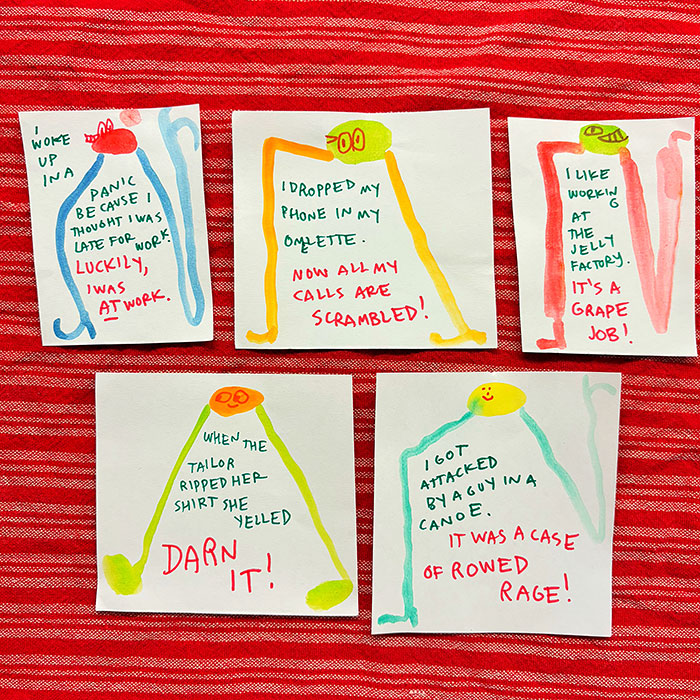 I
WOKE
UP
IN A
PANIC
BECAUSE I
THOUGHT I WAS
LATE FOR WORK.
LUCKILY,
I WAS
AT WORK.
I DROPPED MY
PHONE IN MY
OMLETTE.
NOW ALL MY
CALLS ARE
SCRAMBLED!
I LIKE
WORKING
AT
THE
JELLY
FACTORY.
IT'S A
GRAPE
JOB!
WHEN THE
TAILOR
RIPPED HER
SHIRT SHE
YELLED
DARN
IT!
I GOT
ATTACKED
BY A GUY IN A
CANOE.
IT WAS A CASE
OF ROWED
RAGE!